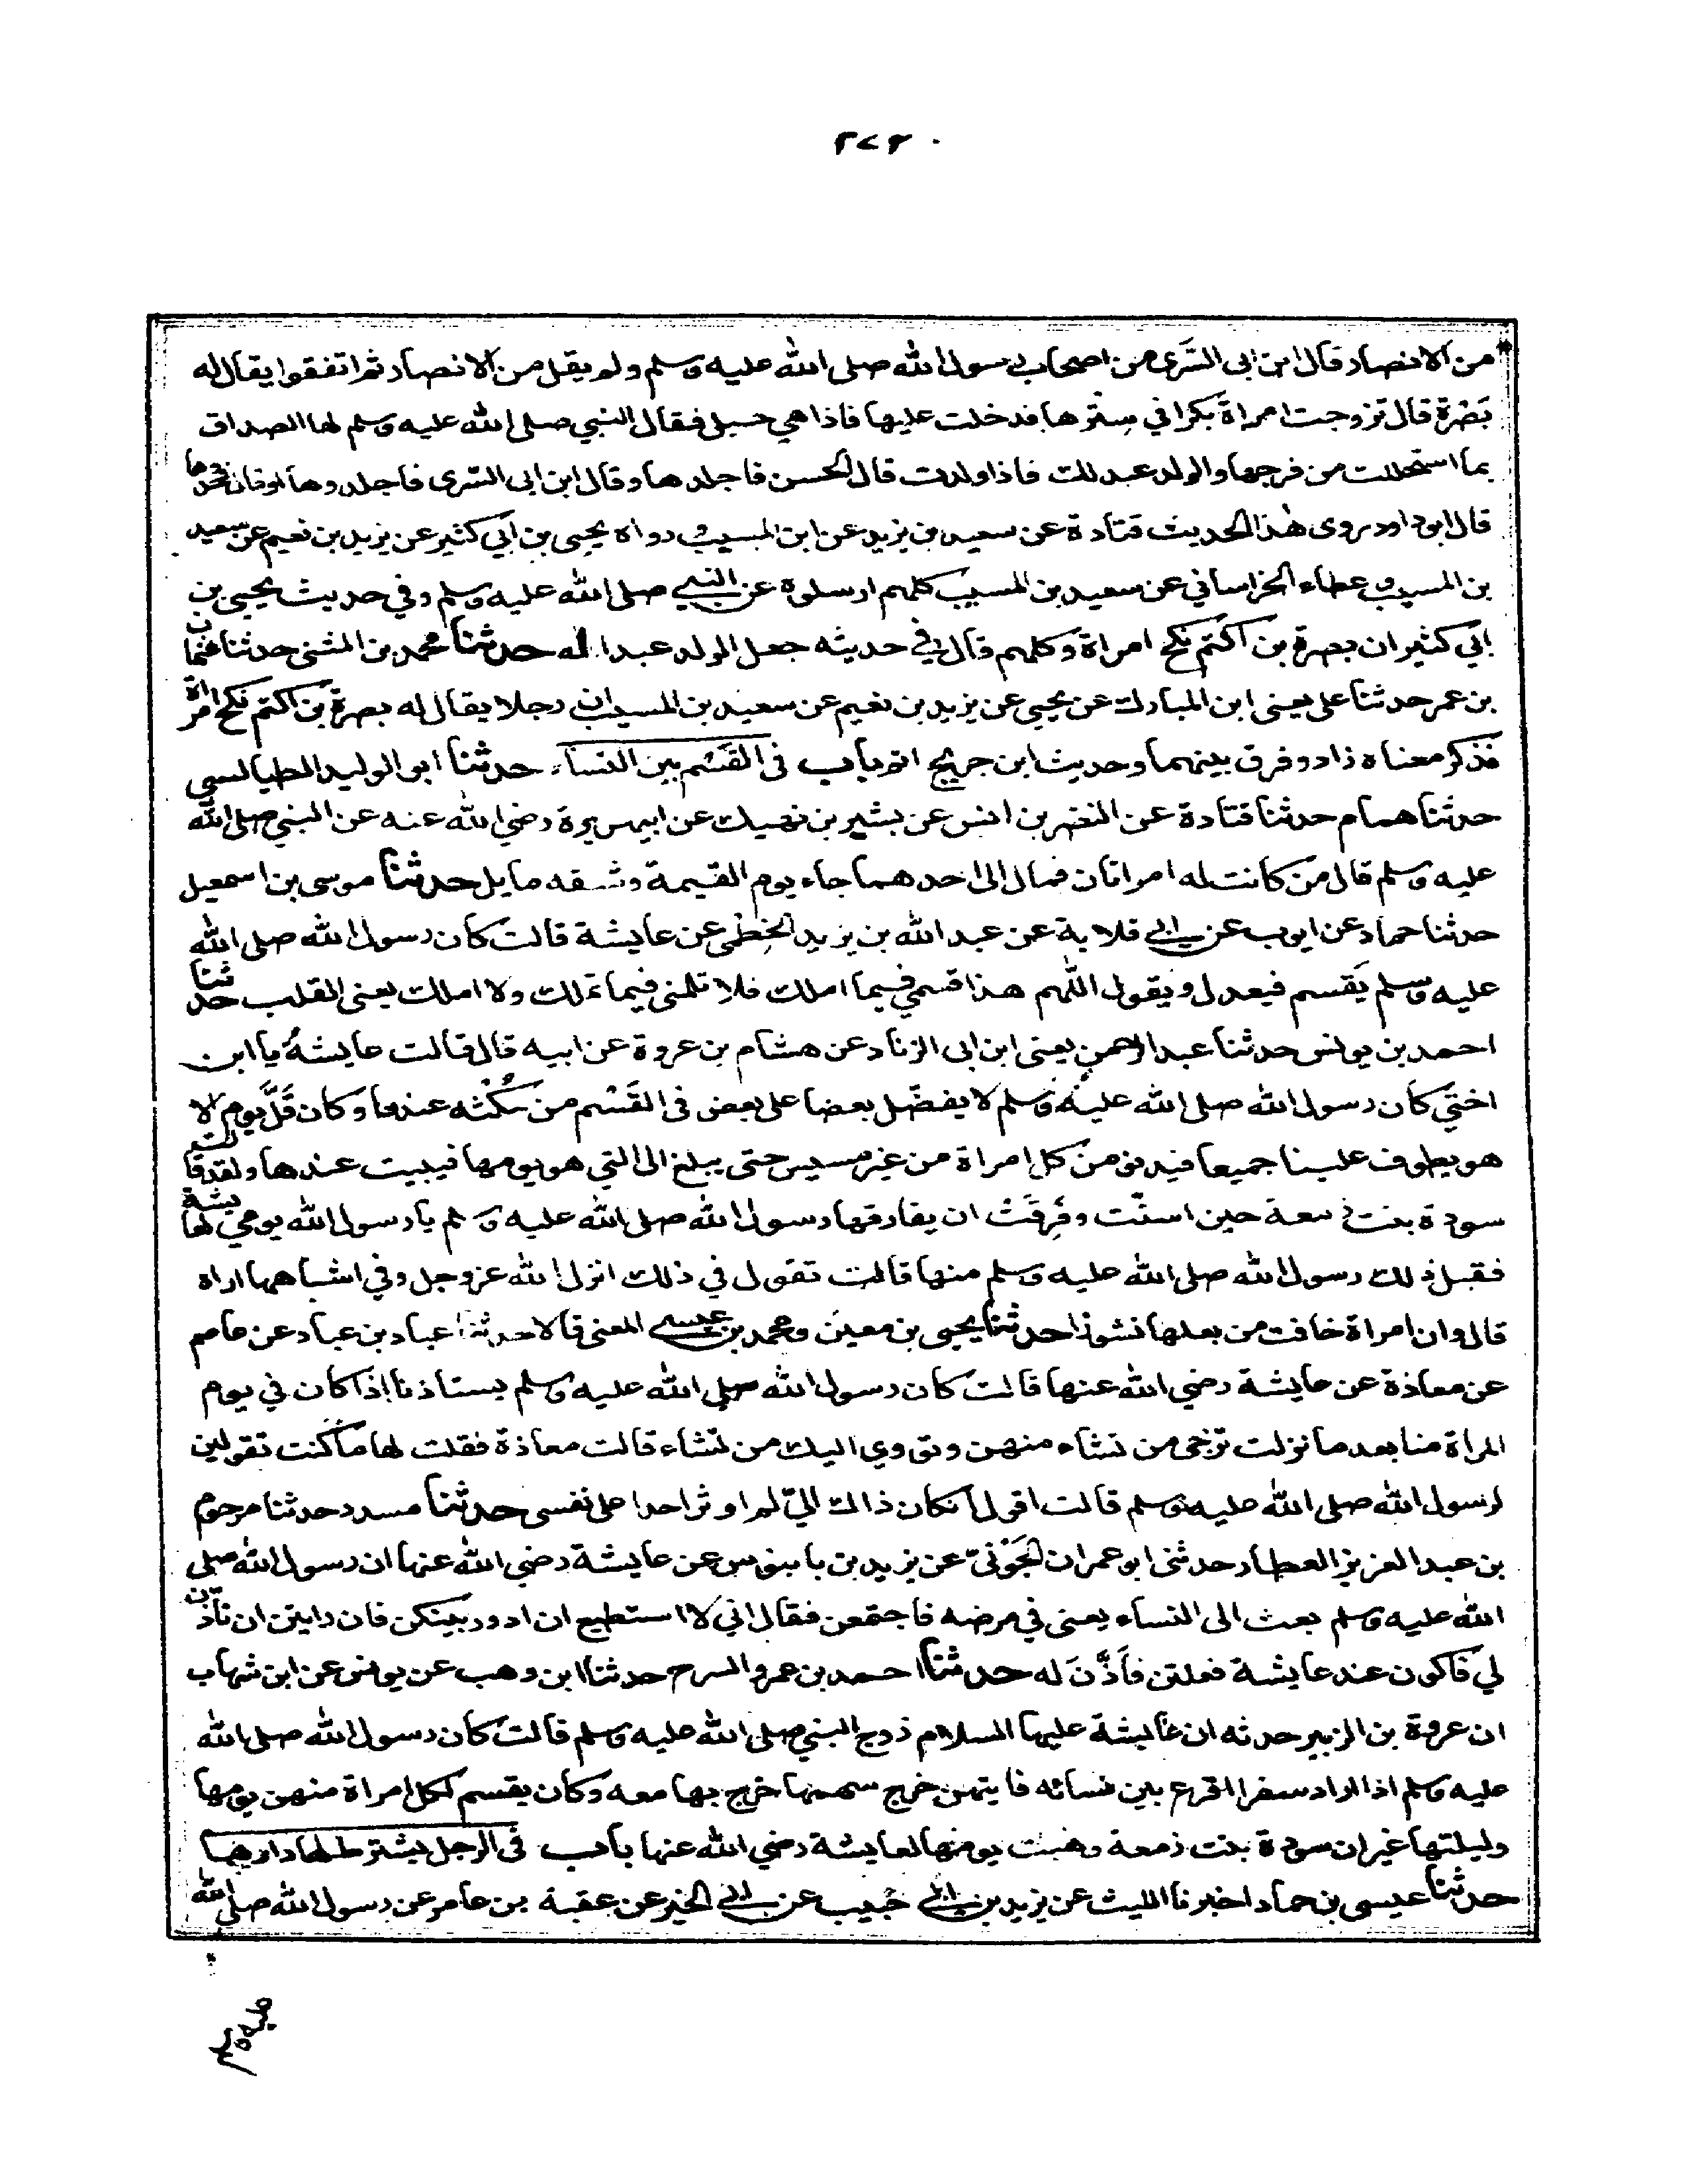 ٢٧٤
من الانصار قال ابن ابى السَّرى من اصحاب رسول الله صلى الله عليه وسلم ولم يقل من الانصار ثم اتفقوا يقال له
بَصْرَة قال تزوجت امراة بكرا في سِترها فدخلت عليها فاذا هي حبلى فقال النبي صلى الله عليه وسلم لها الصداق
بما استحللت من فرجها والولد عبد لك فاذا ولدت قال الحسن فاجلدها وقال ابن ابى السَّرى فاجلدوها او قال فخذوها
قال ابو داود روى هذا الحديث قتادة عن سعيد بن يزيد عن ابن المسيب و رواه يحيى بن ابي كثير عن يزيد بن نعيم عن سعيد
بن المسيب و عطاء الخراساني عن سعيد بن المسيب كلهم ارسلوه عن النبي صلى الله عليه وسلم وفي حديث يحيى بن
ابي كثير ان بصرة بن اكتم نكح امراة وكلهم قال في حديثه جعل الولد عبدا له حدثنا محمد بن المثنى حدثنا عثمان
بن عمر حدثنا على يعنى ابن المبارك عن يحيى عن يزيد بن نعيم عن سعيد بن المسيب ان رجلا يقال له بصرة بن اكتم نكح امراة
فذكر معناه زاد وفرق بينهما وحديث ابن جريج اتم باب فى القَسْم بين النساء حدثنا ابو الوليد الطيالسى
حدثنا همام حدثنا قتادة عن النضر بن انس عن بشير بن نهيك عن ابي هريرة رضي الله عنه عن النبي صلى الله
عليه وسلم قال من كانت له امراتان فمال الى احدهما جاء يوم القيمة وشقه مايل حدثنا موسى بن اسمعيل
حدثنا حماد عن ايوب عن ابي قلابة عن عبد الله بن يزيد الخَطْمى عن عايشة قالت كان رسول الله صلى الله
عليه وسلم يَقسم فيعدل ويقول اللهم هذا قسمي فيما املك فلا تلمنى فيما تملك ولا املك يعنى القلب حدثنا
احمد بن يونس حدثنا عبد الرحمن يعنى ابن ابى الزناد عن هشام بن عروة عن ابيه قال قالت عايشة يا ابن
اختي كان رسول الله صلى الله عليه وسلم لا يفضّل بعضا على بعض فى القَسْم من مُكْثه عندنا وكان قَلَّ يوم الا
هو يطوف علينا جميعا فيدنو من كل امراة من غير مسيس حتى يبلغ الى التي هو يومها فيبيت عندها ولقد قالت
سودة بنت زمعة حين اسنّت وفَرِقَتْ ان يفارقها رسول الله صلى الله عليه وسلم يا رسول الله يومي لعايشة
فقبل ذلك رسول الله صلى الله عليه وسلم منها قالت تقول في ذلك انزل الله عز وجل وفي اشباهها اراه
قال وان امراة خافت من بعلها نشوزا حدثنا يحيى بن معين ومحمد بن عيسى المعنى قالا حدثنا عباد بن عباد عن عاصم
عن معاذة عن عايشة رضي الله عنها قالت كان رسول الله صلى الله عليه وسلم يستاذنا اذا كان في يوم
المراة منا بعد ما نزلت ترجى من تشاء منهن وتؤوي اليك من تشاء قالت معاذة فقلت لها ما كنت تقولين
لرسول الله صلى الله عليه وسلم قالت اقول ان كان ذاك اليّ لم اوثر احدا على نفسى حدثنا مسدد حدثنا مرحوم
بن عبد العزيز العطار حدثنى ابو عمران الجَوْنىّ عن يزيد بن بابنوس عن عايشة رضي الله عنها ان رسول الله صلى
الله عليه وسلم بعث الى النساء يعنى في مرضه فاجتمعن فقال اني لا استطيع ان ادور بينكن فان رايتن ان تاذنّ
لي فاكون عند عايشة فعلتن فاَذِنَّ له حدثنا احمد بن عمرو السرح حدثنا ابن وهب عن يونس عن ابن شهاب
ان عروة بن الزبير حدثه ان عايشة عليها السلام زوج النبي صلى الله عليه وسلم قالت كان رسول الله صلى الله
عليه وسلم اذا اراد سفرا اقرع بين نسائه فايتهن خرج سهمها خرج بها معه وكان يقسم لكل امراة منهن يومها
وليلتها غير ان سودة بنت زمعة وهبت يومها لعايشة رضي الله عنها باب فى الرجل يشترط لها دارها
حدثنا عيسى بن حماد اخبرنا الليث عن يزيد بن ابي حبيب عن ابي الخير عن عقبة بن عامر عن رسول الله صلى الله